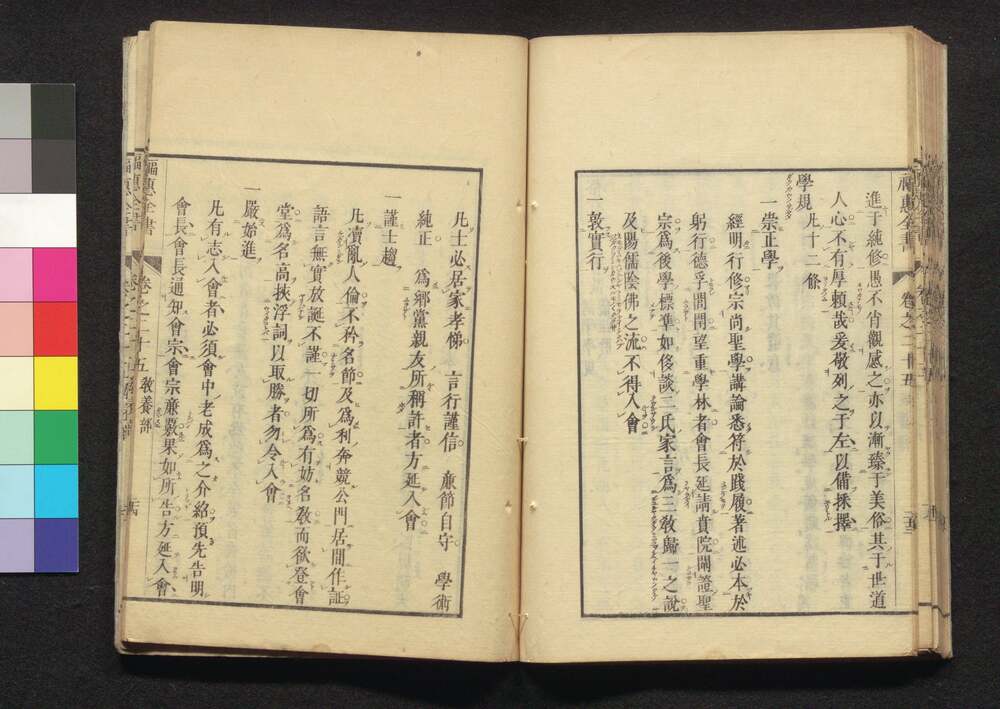 進于純修愚不肖觀感之亦以漸臻于美俗其于世道
人心不有厚賴哉爰敬列之于左以備採擇
學規 凡十二條
一崇正學
經明行修宗尚聖學講論悉符於踐履著述必本於
躬行德孚閭閈望重學林者會長延請賁院闡證聖
宗爲後學標準如侈談二氏家言爲三敎歸一之說
及陽儒陰佛之流不得入會
一敦實行
凡士必居家孝悌 言行謹信 廉節自守 學術
純正 爲鄉黨親友所稱許者方延入會
一謹士趨
凡瀆亂人倫不矜名節及爲利奔競公門居間作証
語言無實放誕不謹一切所爲有妨名敎而欲登會
堂爲名高挾浮詞以取勝者勿令入會
一嚴始進
凡有志入會者必須會中老成爲之介紹預先告明
會長會長通知會宗會宗廉覈果如所告方延入會
福惠全書 卷之二十五 敎養部